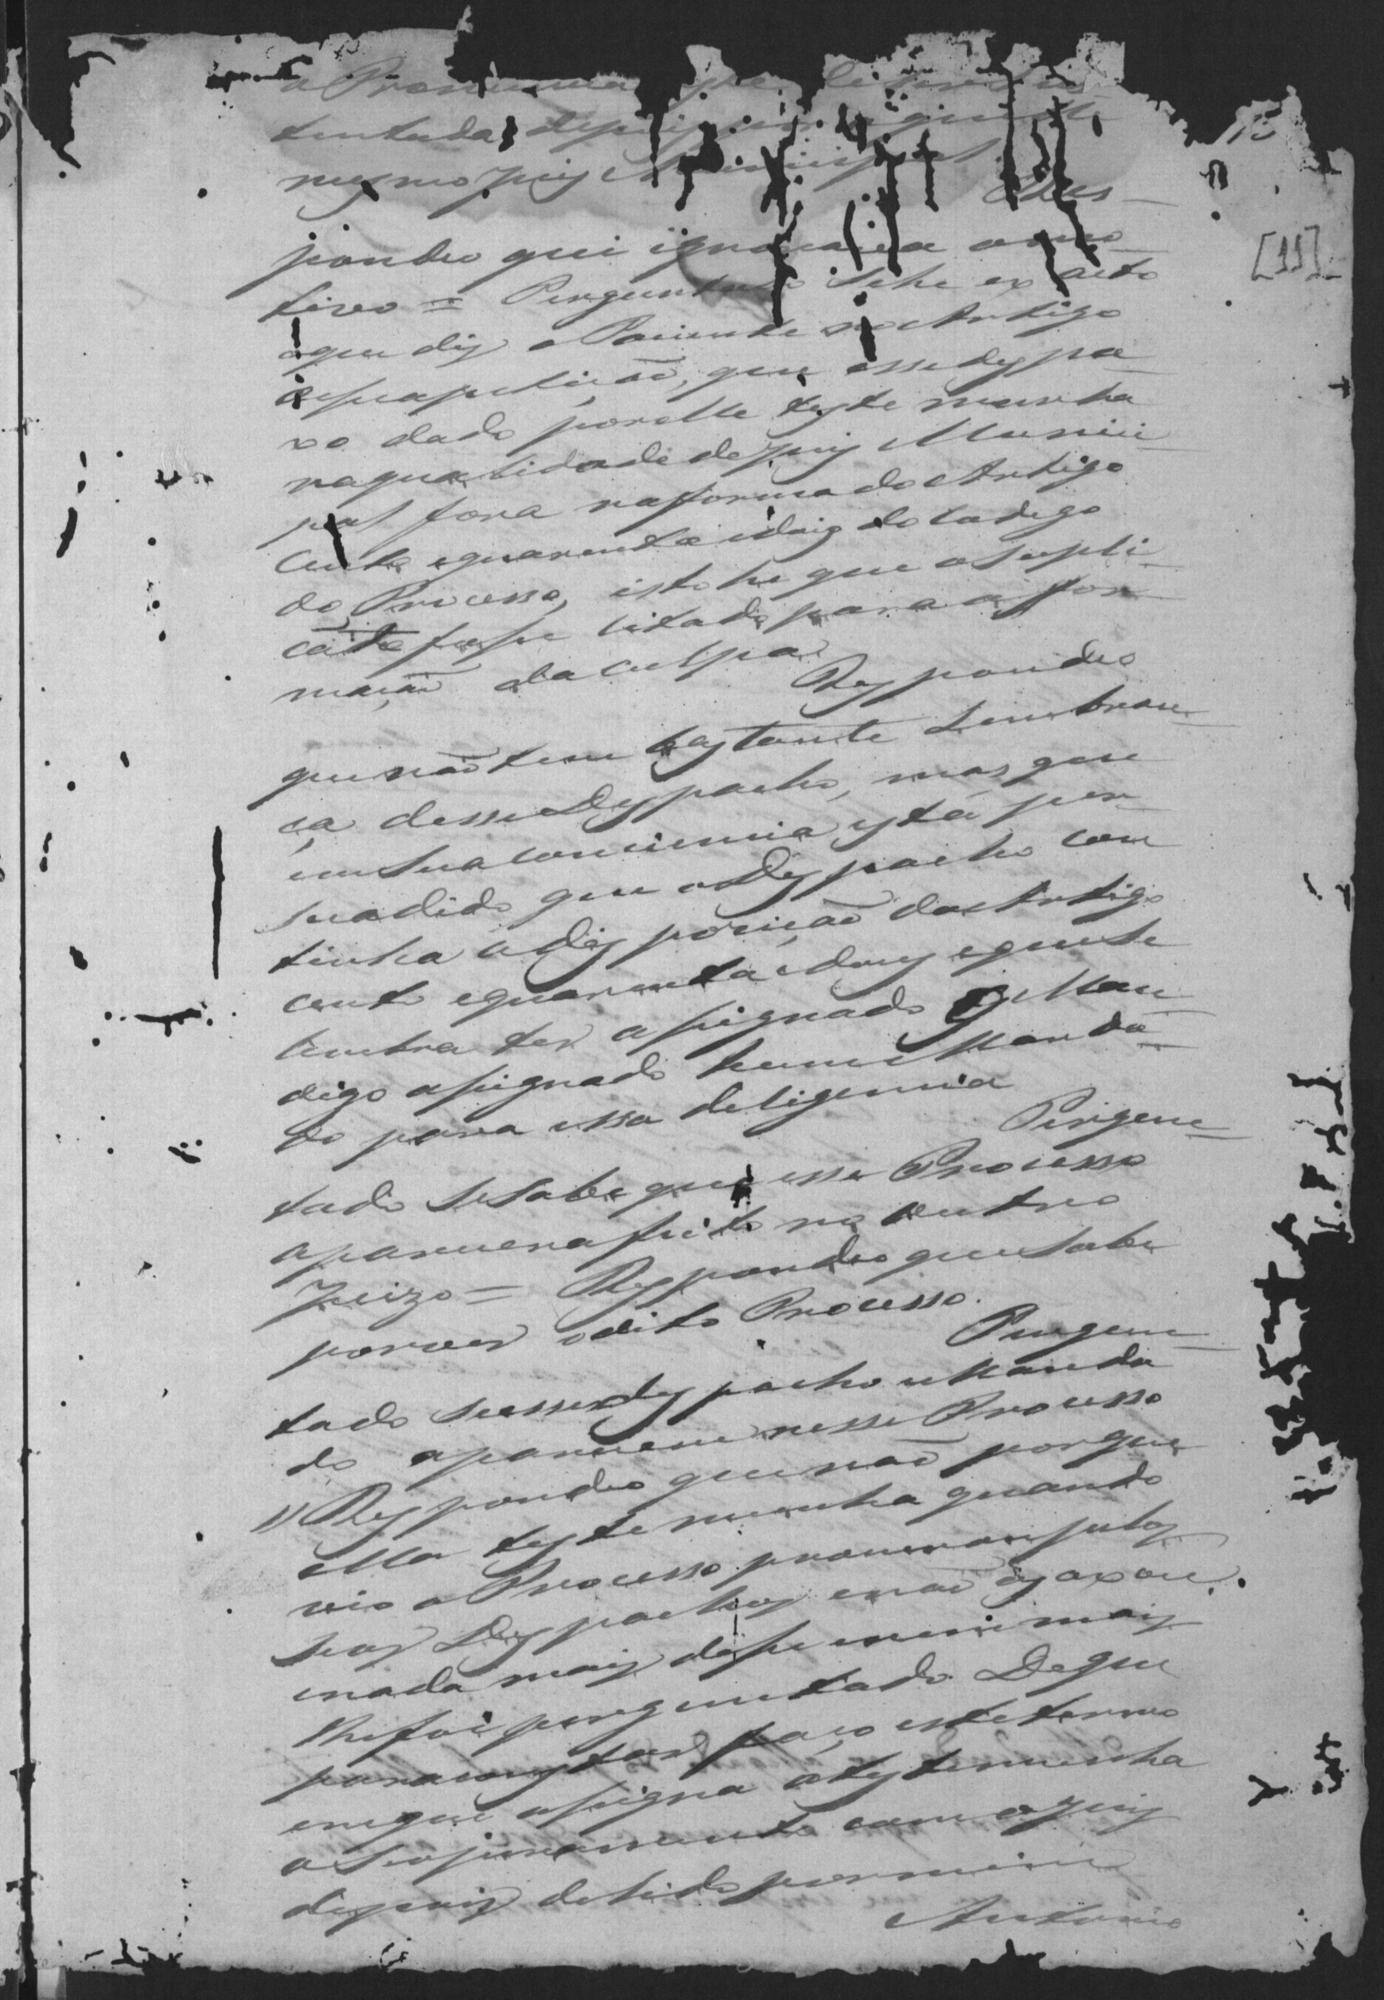 a Pronuncia
tentada depois
mesmo Juiz Municipal Res-
pondeo que ignorava o mo-
tivo = Perguntado se he exacto
o que diz o Paciente no Artigo
de sua petição, que esse despa-
xo dado por elle testemunha
na qualidade de Juiz Munici-
pal fora na forma do Artigo
cento e quarenta e dois do Codigo
do Processo, isto he que o Supli-
cãte fosse citado para a for-
mação da culpa Respondeo
que não tem bastante Lembran-
ça desse Despacho, mas que
em sua conciencia está per-
suadido que o Despacho con-
tinha a Disposição do Artigo
cento e quarenta e dous e que se
lembra ter assignado o Man
digo assignado hum Manda-
do para essa deligencia Pergun-
tado se sabe que esse Processo
aparecera feito no outro
Juizo = Respondeo que sabe
por ver o dito Processo. Pergun-
tado se esse despacho e Manda-
do aparecem nesse Processo
// Respondeo que não porque
elle testemunha quando
vio o Processo procurou pelos
seos Despachos e não os axou.
e nada mais disse nem mais
lhe foi perguntado. De que
para constar faço este termo
em que assigna a testemunha
o seo juramento com o Juiz
depois de lido por mim
Antonio
[11]